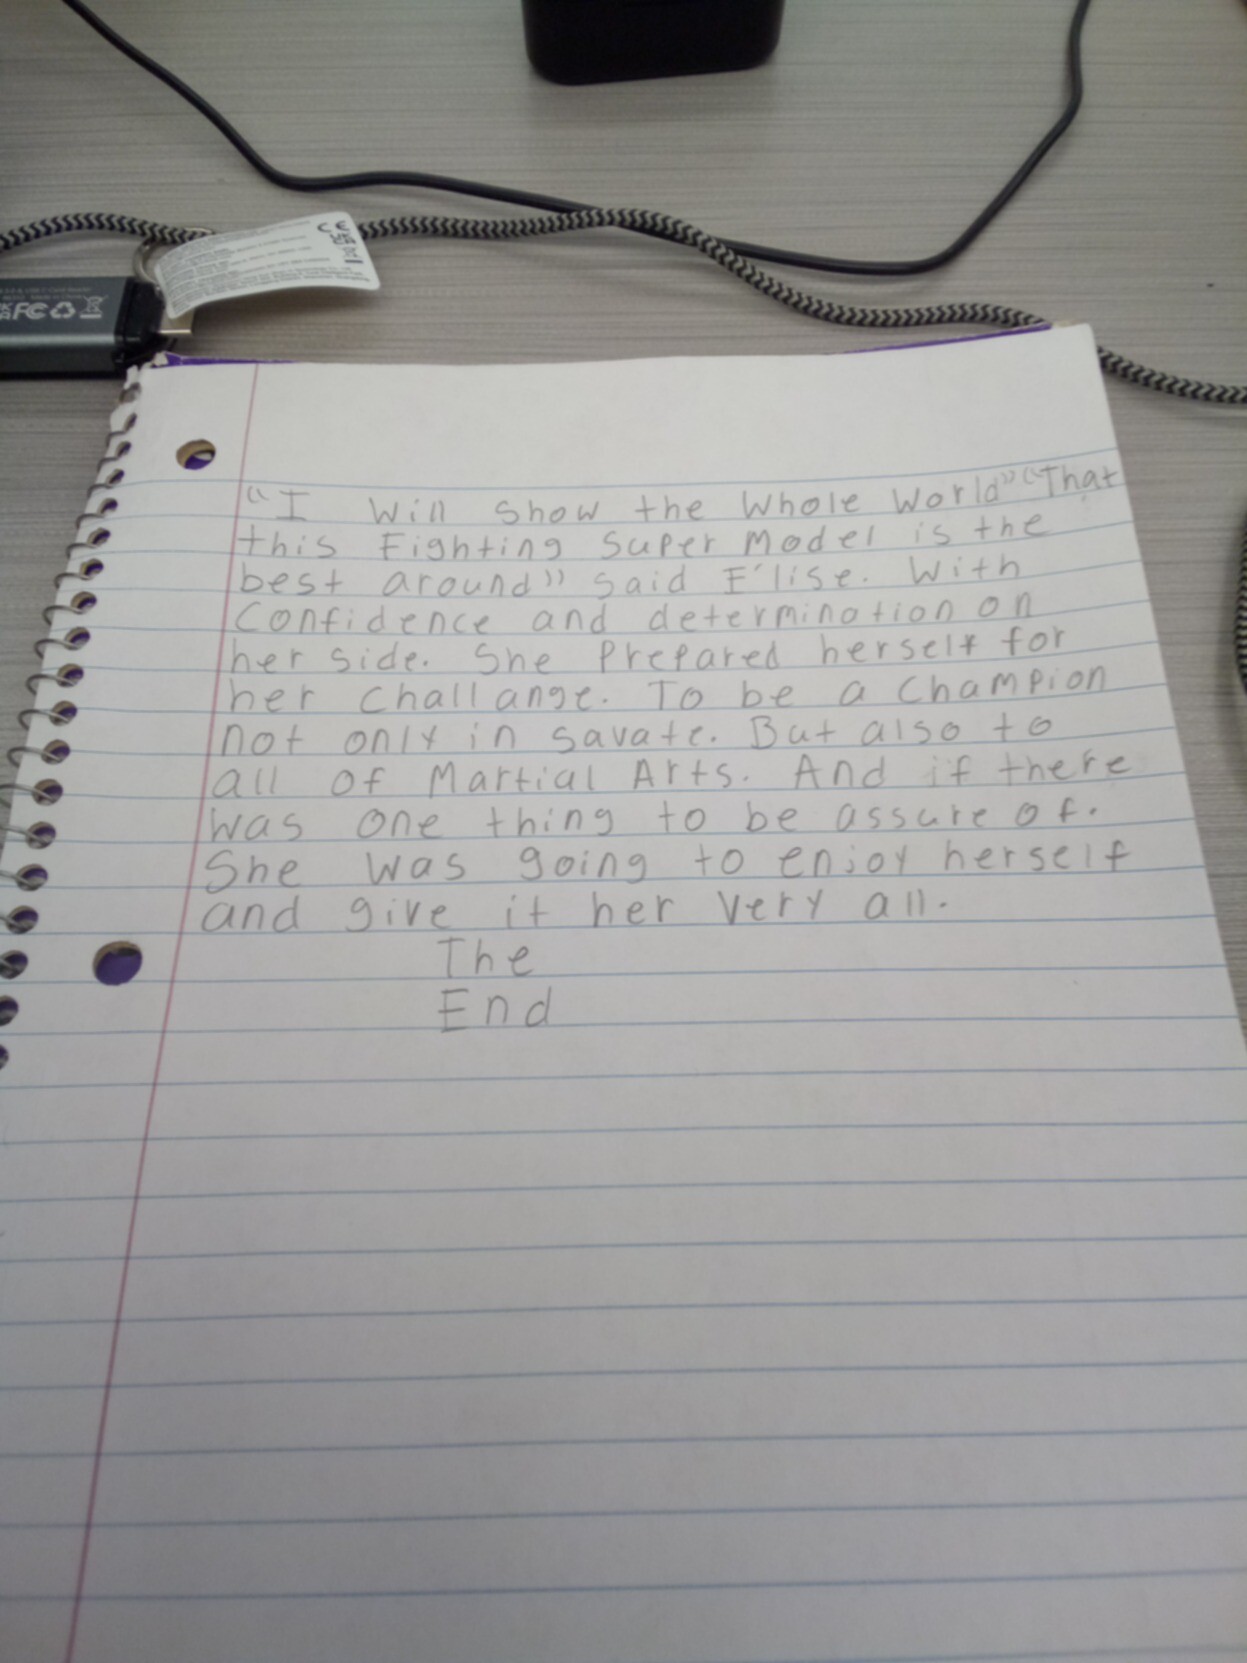 FC
WAS
"I Will show the Whole World" "That
this Fighting Super Model is the
best around" said E'lise. With
Confidence and determination on
her side. She Prepared herself for
her challange. To be a Champion
not only in savate. But also to
all of Martial Arts. And if there
was one thing to be assure of.
She was going to enjoy herself
and give it her very all.
The
End